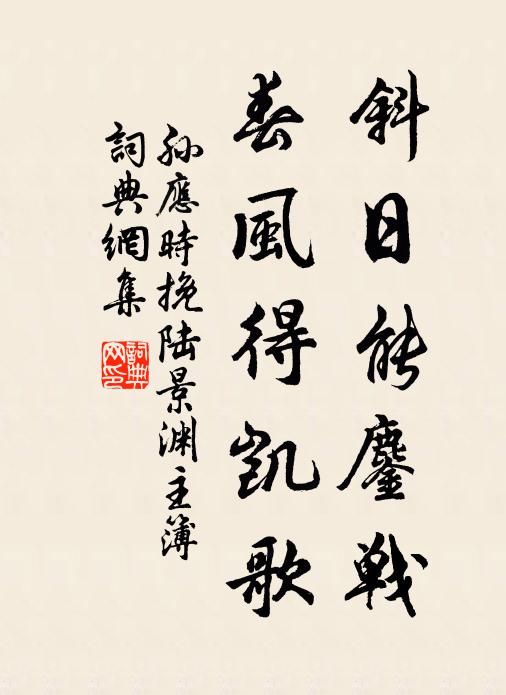 斜日能鏖戦
春風得凱歌
孫應時挽陆景渊主簿
詞典網集
詞典网印